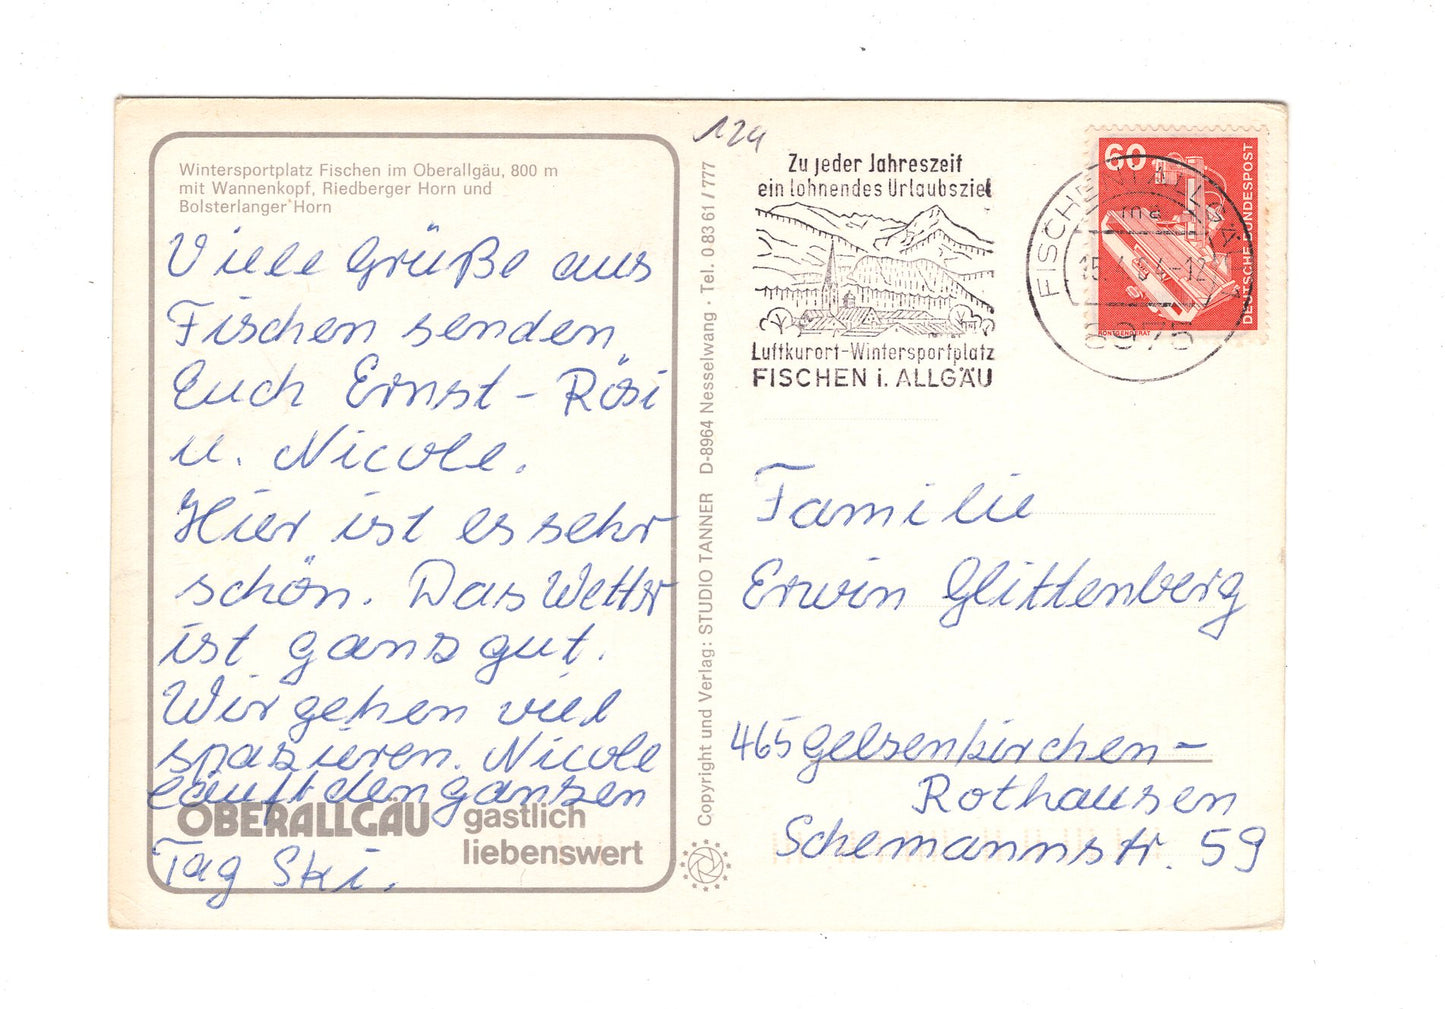 Wintersportplatz Fischen im Oberallgäu, 800 m
mit Wannenkopf, Riedberger Horn und
Bolsterlanger Horn
Viele Grüße aus
Fischen senden
Euch Ernst - Rösi
u. Nicole.
Hier ist es sehr
schön. Das Wetter
ist ganz gut.
Wir gehen viel
spazieren. Nicole
läuft den ganzen
Tag Ski.
OBERALLGÄU gastlich
liebenswert
Copyright und Verlag: STUDIO TANNER D-8964 Nesselwang · Tel. 0 83 61 / 777
124
Zu jeder Jahreszeit
ein lohnendes Urlaubsziel
Luftkurort-Wintersportplatz
FISCHEN i. ALLGÄU
FISCHEN ALLGÄU
ma
15. -12
8975
60
DEUTSCHE BUNDESPOST
RÖNTGENGERÄT
Familie
Erwin Glittenberg
465 Gelsenkirchen-
Rothausen
Schemannstr. 59